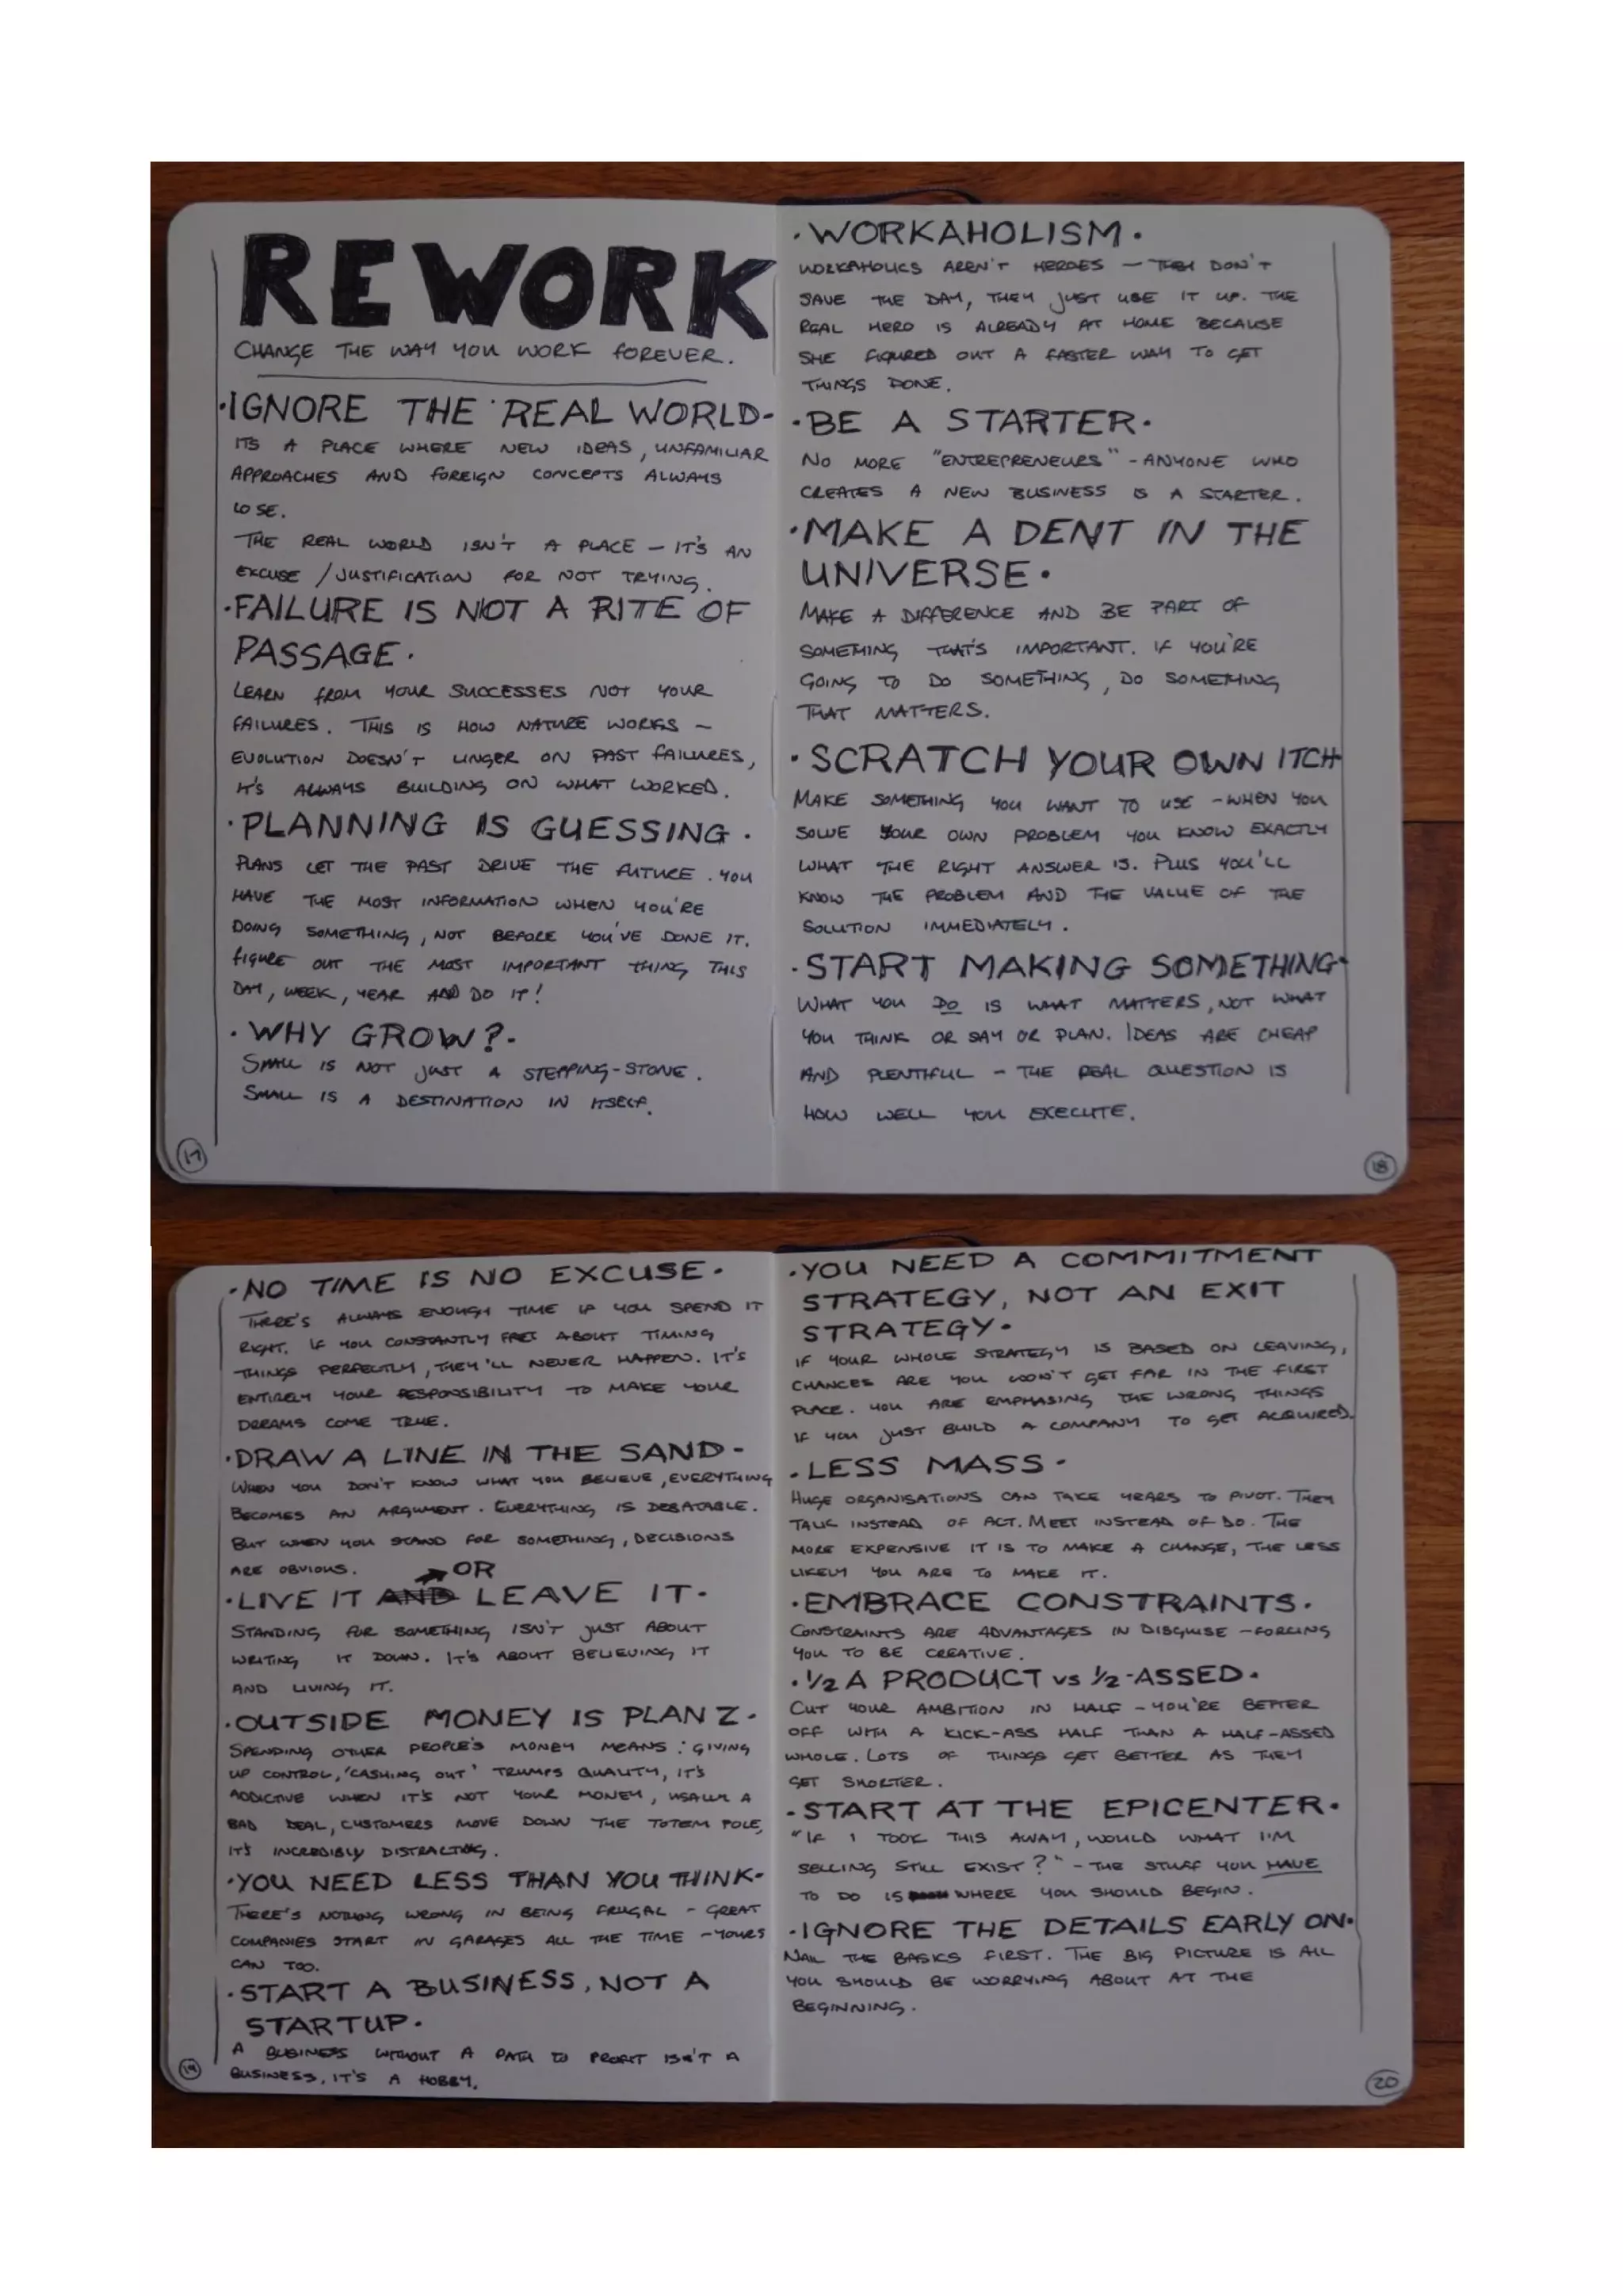 REWORK
CHANGE THE WAY YOU WORK FOREVER.
·IGNORE THE REAL WORLD-
ITS A PLACE WHERE NEW IDEAS, UNFAMILIAR
APPROACHES AND FOREIGN CONCEPTS ALWAYS
LOSE.
THE REAL WORLD ISN'T A PLACE – IT'S AN
EXCUSE / JUSTIFICATION FOR NOT TRYING.
·FAILURE IS NOT A RITE OF
PASSAGE·
LEARN FROM YOUR SUCCESSES NOT YOUR
FAILURES. THIS IS HOW NATURE WORKS –
EVOLUTION DOESN'T LINGER ON PAST FAILURES,
IT'S ALWAYS BUILDING ON WHAT WORKED.
·PLANNING IS GUESSING·
PLANS LET THE PAST DRIVE THE FUTURE. YOU
HAVE THE MOST INFORMATION WHEN YOU'RE
DOING SOMETHING, NOT BEFORE YOU'VE DONE IT.
FIGURE OUT THE MOST IMPORTANT THING THIS
DAY, WEEK, YEAR AND DO IT!
·WHY GROW?·
SMALL IS NOT JUST A STEPPING-STONE.
SMALL IS A DESTINATION IN ITSELF.
17
·WORKAHOLISM·
WORKAHOLICS AREN'T HEROES – THEY DON'T
SAVE THE DAY, THEY JUST USE IT UP. THE
REAL HERO IS ALREADY AT HOME BECAUSE
SHE FIGURED OUT A FASTER WAY TO GET
THINGS DONE.
·BE A STARTER·
NO MORE "ENTREPRENEURS" - ANYONE WHO
CREATES A NEW BUSINESS IS A STARTER.
·MAKE A DENT IN THE
UNIVERSE·
MAKE A DIFFERENCE AND BE PART OF
SOMETHING THAT'S IMPORTANT. IF YOU'RE
GOING TO DO SOMETHING, DO SOMETHING
THAT MATTERS.
·SCRATCH YOUR OWN ITCH
MAKE SOMETHING YOU WANT TO USE – WHEN YOU
SOLVE YOUR OWN PROBLEM YOU KNOW EXACTLY
WHAT THE RIGHT ANSWER IS. PLUS YOU'LL
KNOW THE PROBLEM AND THE VALUE OF THE
SOLUTION IMMEDIATELY.
·START MAKING SOMETHING·
WHAT YOU DO IS WHAT MATTERS, NOT WHAT
YOU THINK OR SAY OR PLAN. IDEAS ARE CHEAP
AND PLENTIFUL – THE REAL QUESTION IS
HOW WELL YOU EXECUTE.
18
·NO TIME IS NO EXCUSE·
THERE'S ALWAYS ENOUGH TIME IF YOU SPEND IT
RIGHT. IF YOU CONSTANTLY FRET ABOUT TIMING
THINGS PERFECTLY, THEY'LL NEVER HAPPEN. IT'S
ENTIRELY YOUR RESPONSIBILITY TO MAKE YOUR
DREAMS COME TRUE.
·DRAW A LINE IN THE SAND-
WHEN YOU DON'T KNOW WHAT YOU BELIEVE, EVERYTHING
BECOMES AN ARGUMENT. EVERYTHING IS DEBATABLE.
BUT WHEN YOU STAND FOR SOMETHING, DECISIONS
ARE OBVIOUS.
OR
·LIVE IT AND LEAVE IT·
STANDING FOR SOMETHING ISN'T JUST ABOUT
WRITING IT DOWN. IT'S ABOUT BELIEVING IT
AND LIVING IT.
·OUTSIDE MONEY IS PLAN Z·
SPENDING OTHER PEOPLE'S MONEY MEANS: GIVING
UP CONTROL, 'CASHING OUT' TRUMPS QUALITY, IT'S
ADDICTIVE WHEN IT'S NOT YOUR MONEY, USALLY A
BAD DEAL, CUSTOMERS MOVE DOWN THE TOTEM POLE,
IT'S INCREDIBLY DISTRACTING.
·YOU NEED LESS THAN YOU THINK-
THERE'S NOTHING WRONG IN BEING FRUGAL - GREAT
COMPANIES START IN GARAGES ALL THE TIME – YOURS
CAN TOO.
·START A BUSINESS, NOT A
STARTUP·
A BUSINESS WITHOUT A PATH TO PROFIT ISN'T A
BUSINESS, IT'S A HOBBY.
19
·YOU NEED A COMMITMENT
STRATEGY, NOT AN EXIT
STRATEGY·
IF YOUR WHOLE STRATEGY IS BASED ON LEAVING,
CHANCES ARE YOU WON'T GET FAR IN THE FIRST
PLACE. YOU ARE EMPHASING THE WRONG THINGS
IF YOU JUST BUILD A COMPANY TO GET ACQUIRED.
·LESS MASS·
HUGE ORGANISATIONS CAN TAKE YEARS TO PIVOT. THEY
TALK INSTEAD OF ACT. MEET INSTEAD OF DO. THE
MORE EXPENSIVE IT IS TO MAKE A CHANGE, THE LESS
LIKELY YOU ARE TO MAKE IT.
·EMBRACE CONSTRAINTS.
CONSTRAINTS ARE ADVANTAGES IN DISGUISE – FORCING
YOU TO BE CREATIVE.
·½ A PRODUCT vs ½-ASSED·
CUT YOUR AMBITION IN HALF – YOU'RE BETTER
OFF WITH A KICK-ASS HALF THAN A HALF-ASSED
WHOLE. LOTS OF THINGS GET BETTER AS THEY
GET SHORTER.
·START AT THE EPICENTER·
"IF I TOOK THIS AWAY, WOULD WHAT I'M
SELLING STILL EXIST?" – THE STUFF YOU HAVE
TO DO IS WHERE YOU SHOULD BEGIN.
·IGNORE THE DETAILS EARLY ON·
NAIL THE BASICS FIRST. THE BIG PICTURE IS ALL
YOU SHOULD BE WORRYING ABOUT AT THE
BEGINNING.
20